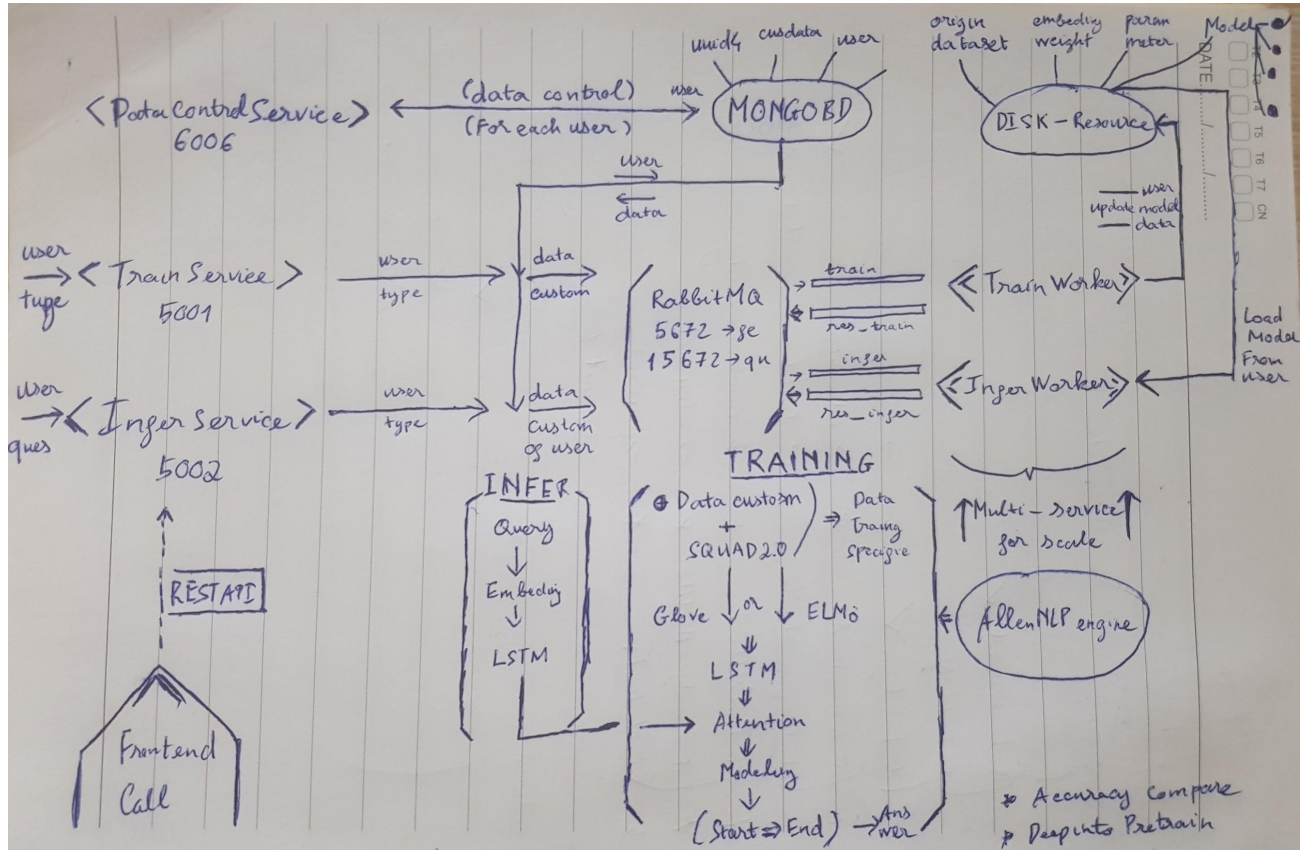 origin
dataset
embeding
weight
param
meter
Model
uuid4
cusdata
user
DATE
T3
T4
T5
T6
T7
CN
<DataControlService>
6006
(data control)
(For each user)
user
MONGOBD
DISK-Resource
user
data
user
update model
data
user
type
<TrainService>
5001
user
type
data
custom
RabbitMQ
5672 → se
15672 → qu
train
res_train
infer
res_infer
<<TrainWorker>>
<<InferWorker>>
Load
Model
From
user
user
ques
<InferService>
5002
user
type
data
custom
of user
RESTAPI
Frontend
Call
INFER
Query
Embeding
LSTM
TRAINING
Data custom
+
SQUAD2.0
⇒ Data
Traing
specific
Glove or ELMo
LSTM
Attention
Modeling
(Start ⇒ End) → Ans
wer
Multi-service
for scale
AllenNLP engine
* Accuracy Compare
* Deep into Pretrain